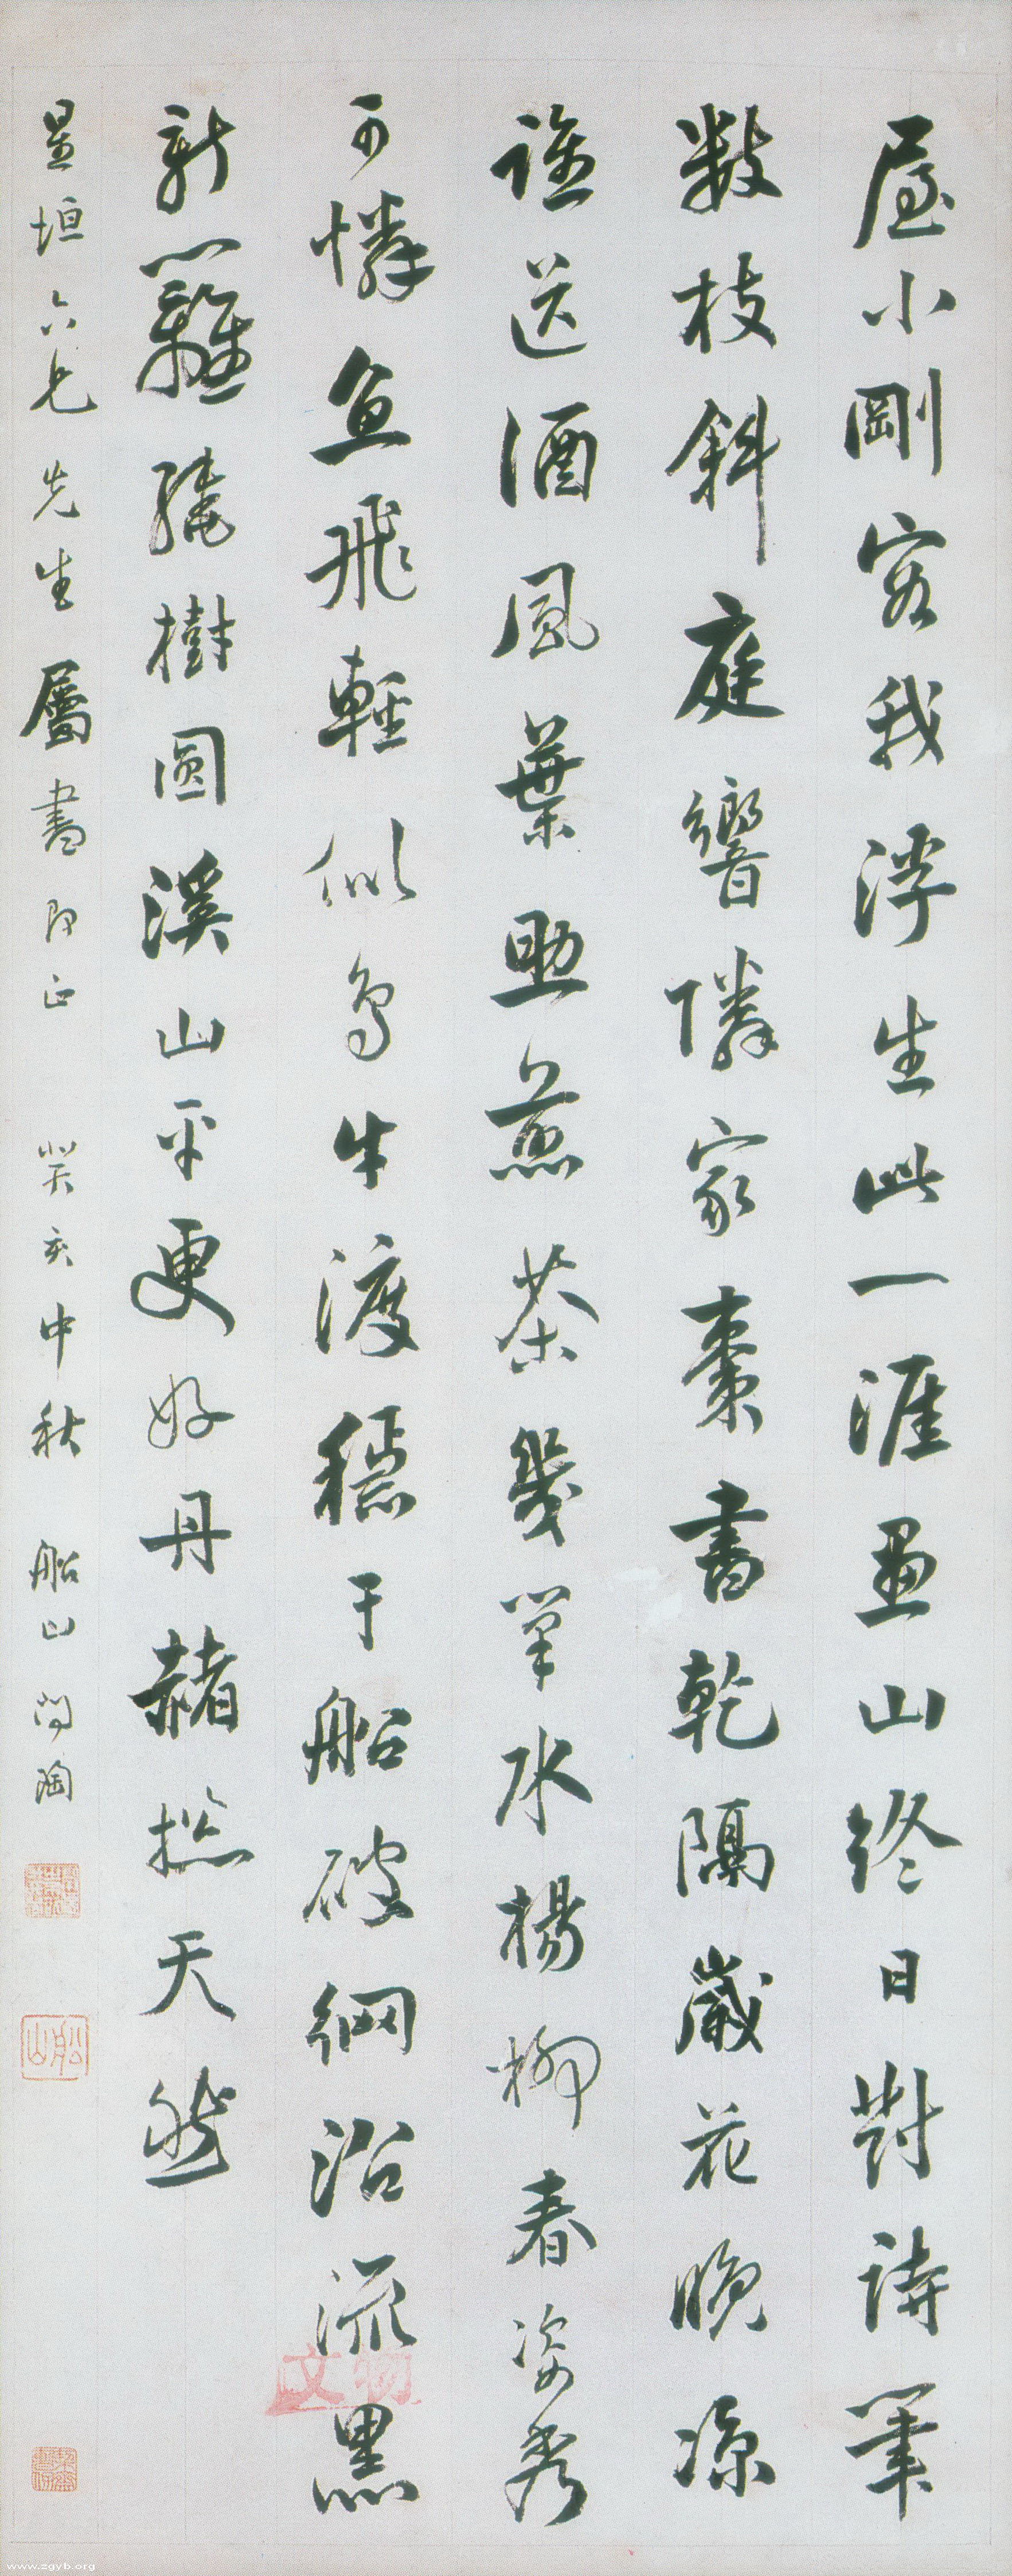 屋小剛容我浮生此一涯畫山終日對詩筆
數枝斜庭響隣家棗書乾隔歲花晚凉
誰送酒風葉助煎茶幾筆水楊柳春姿秀
可憐魚飛輕似鳥牛渡穩于船破網沿流黑
新籬繞樹圓溪山平更好丹赭總天然
星垣六兄先生屬書即正 癸亥中秋 船山問陶
船山
文物
www.zgyb.org